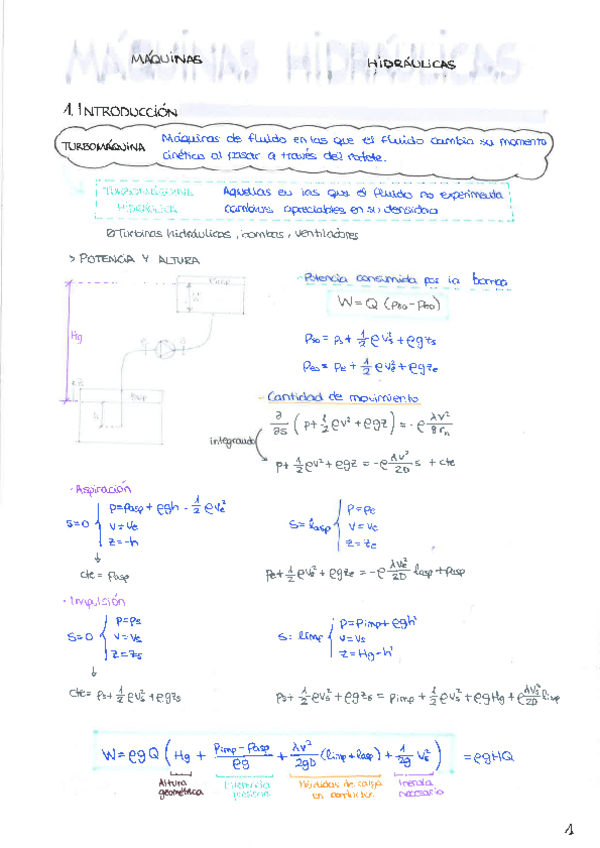 MÁQUINAS HIDRÁULICAS
1. INTRODUCCIÓN
TURBOMÁQUINA Máquinas de fluido en las que el fluido cambia su momento
cinético al pasar a través del rodete.
TURBOMÁQUINA HIDRÁULICA Aquellas en las que el fluido no experimenta
cambios apreciables en su densidad
Turbinas hidráulicas, bombas, ventiladores
> POTENCIA Y ALTURA
- Potencia consumida por la bomba
W = Q (pso - peo)
Hg
Pasp
pso = ps + 1/2 ρvs² + ρgzs
peo = pe + 1/2 ρve² + ρgze
- Cantidad de movimiento
∂/∂s (p + 1/2 ρv² + ρgz) = -ρ λv²/8rh
integrando
p + 1/2 ρv² + ρgz = -ρ λv²/2D s + cte
- Aspiración
s=0 { p = pasp + ρgh - 1/2 ρve²
v = ve
z = -h
s = lasp { p = pe
v = ve
z = ze
cte = pasp
pe + 1/2 ρve² + ρgze = -ρ λve²/2D lasp + pasp
- Impulsión
s=0 { p = ps
v = vs
z = zs
s = limp { p = pimp + ρgh'
v = vs
z = Hg - h'
cte = ps + 1/2 ρvs² + ρgzs
ps + 1/2 ρvs² + ρgzs = pimp + 1/2 ρvs² + ρgHg + ρ λvs²/2D limp
W = ρgQ (Hg + (pimp - pasp)/ρg + λv²/2gD (limp + lasp) + 1/2g vs²) = ρgHQ
Altura geométrica
Diferencia presiones
Pérdidas de carga en conductos
Energía necesaria
1